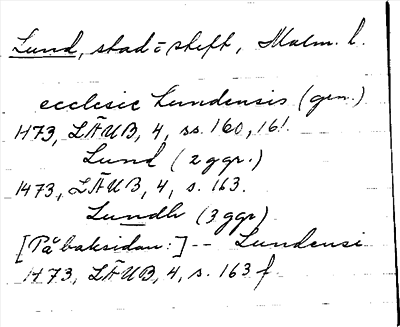 Lund, stad o stift, Malm. l.
ecclesie Lundensis (gen.)
1473, LÄUB, 4, ss. 160, 161.
Lund (2 ggr.)
1473, LÄUB, 4, s. 163.
Lundh (3 ggr)
[På baksidan:] -- Lundensi
1473, LÄUB, 4, s. 163 f.